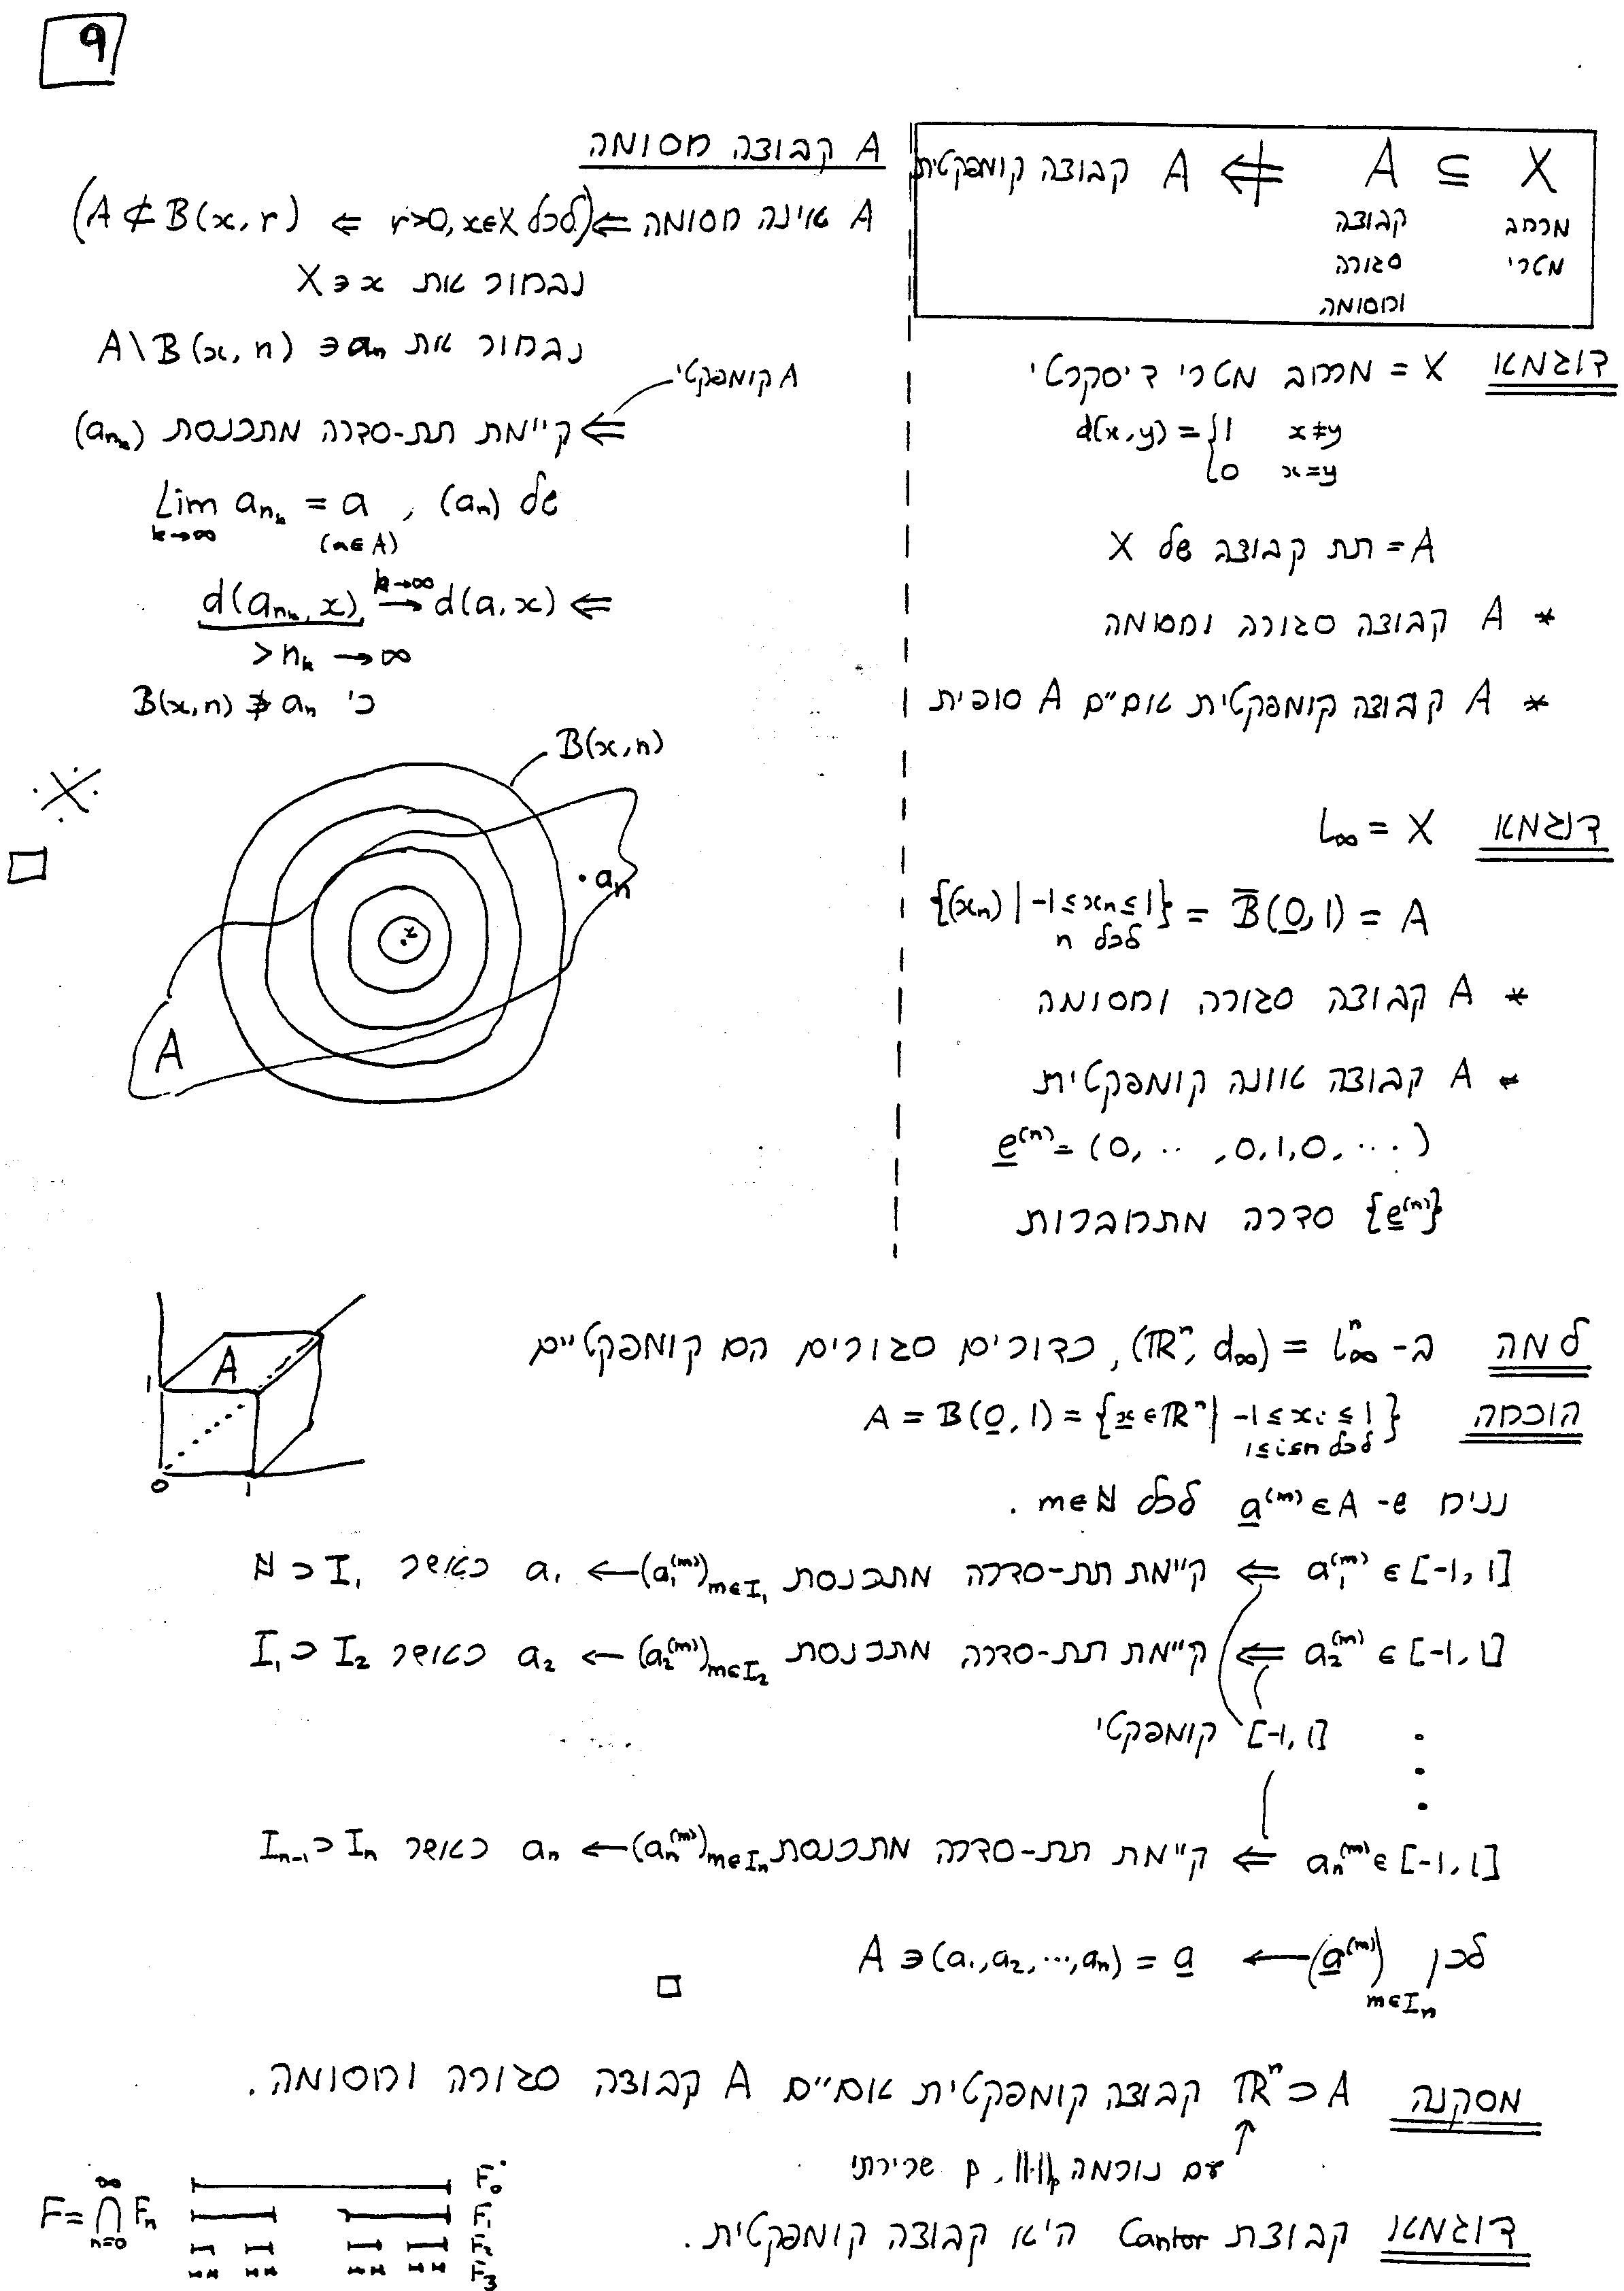 9
X ⊆ A ⇍ A קבוצה קומפקטית
מרחב קבוצה
מטרי סגורה
וחסומה
דוגמא X = מרחב מטרי דיסקרטי
d(x,y) = { 1 x≠y
0 x=y
A = תת קבוצה של X
* A קבוצה סגורה וחסומה
* A קבוצה קומפקטית אם״ם A סופית
דוגמא X = l∞
A = B̄(0,1) = {(xₙ) | -1≤xₙ≤1}
לכל n
* A קבוצה סגורה וחסומה
* A קבוצה אינה קומפקטית
e⁽ⁿ⁾ = (0, .. ,0,1,0, ...)
{e⁽ⁿ⁾} סדרה מתבדרת
A קבוצה חסומה
A אינה חסומה ⇐ (לכל r>0, x∈X ⇐ A ⊄ B(x,r))
נבחור את x ∈ X
נבחור את aₙ ∈ A\B(x,n)
A קומפקטי
⇐ קיימת תת-סדרה מתכנסת (a_{n_k})
של (aₙ) , lim a_{n_k} = a
k→∞ (a∈A)
⇐ d(a_{n_k}, x) →^{k→∞} d(a,x)
> n_k → ∞
כי aₙ ∉ B(x,n)
B(x,n)
x
aₙ
A
□
למה ב- l∞ⁿ = (ℝⁿ, d∞), כדורים סגורים הם קומפקטיים
הוכחה A = B(0,1) = {x∈ℝⁿ | -1≤xᵢ≤1}
לכל 1≤i≤n
A
1
0 1
נניח ש- a⁽ᵐ⁾∈A לכל m∈ℕ.
a₁⁽ᵐ⁾ ∈ [-1,1] ⇐ קיימת תת-סדרה מתכנסת (a₁⁽ᵐ⁾)_{m∈I₁} → a₁ כאשר ℕ ⊃ I₁
a₂⁽ᵐ⁾ ∈ [-1,1] ⇐ קיימת תת-סדרה מתכנסת (a₂⁽ᵐ⁾)_{m∈I₂} → a₂ כאשר I₁ ⊃ I₂
[-1,1] קומפקטי
aₙ⁽ᵐ⁾ ∈ [-1,1] ⇐ קיימת תת-סדרה מתכנסת (aₙ⁽ᵐ⁾)_{m∈Iₙ} → aₙ כאשר Iₙ₋₁ ⊃ Iₙ
לכן (a⁽ᵐ⁾)_{m∈Iₙ} → a = (a₁,a₂,...,aₙ) ∈ A
□
מסקנה A ⊂ ℝⁿ קבוצה קומפקטית אם״ם A קבוצה סגורה וחסומה.
עם נורמה ||·||ₚ, p שרירותי
דוגמא קבוצת Cantor היא קבוצה קומפקטית.
F = ∩_{n=0}^{∞} Fₙ
F₀
F₁
F₂
F₃